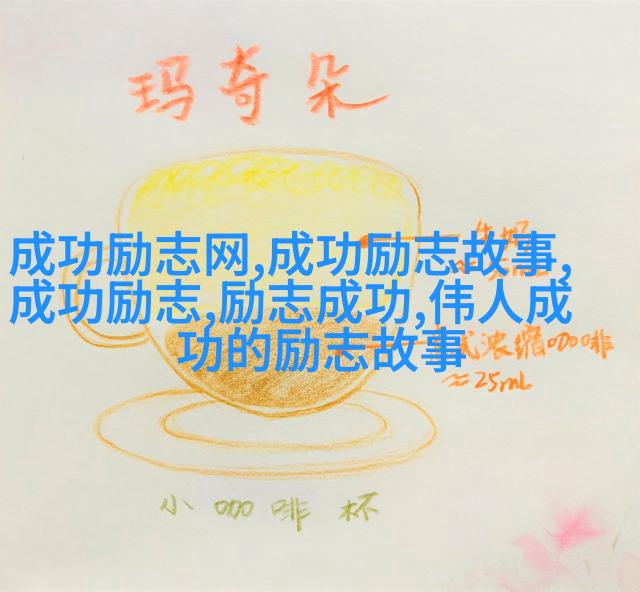 玛奇朵
成功励志网,成功励志故事,
成功励志,励志成功,伟人成
功的励志故事
式浓缩咖啡
≈25mL
小咖啡杯